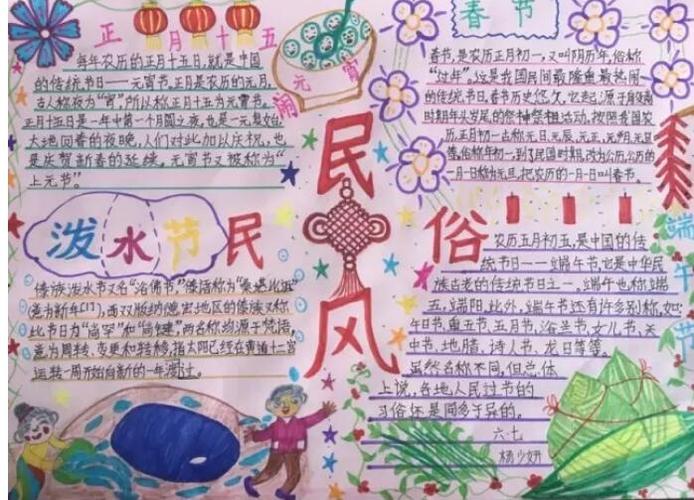 正月十五
每年农历的正月十五日,就是中国
的传统节日——元宵节。正月是农历的元月,
古人称夜为“宵”,所以称正月十五为元宵节。
正月十五日是一年中第一个月圆之夜,也是一元复始,
大地回春的夜晚,人们对此加以庆祝,也
是庆贺新春的延续。元宵节又被称为“
上元节”。
闹元宵
春节
春节,是农历正月初一,又叫阴历年,俗称
“过年”。这是我国民间最隆重最热闹
的传统节日。春节历史悠久,它起源于
时期年头岁尾的祭神祭祖活动。按照我国农
历,正月初一古称元日、元辰、元正、元朔、元旦
等,俗称年初一,到了民国时期,改为公历,公历的
一月一日称为元旦,把农历的一月一日叫春节。
民风
民俗
泼水节
傣族泼水节又名“浴佛节”,傣语称为“
意为新年),西双版纳德宏地区的傣族又称
此节日为“尚罕”和“尚键”,两名称均源于梵语,
意为周转、变更和转移,指太阳已经在黄道十二宫
运转一周开始向新的一年过渡。
端午节
农历五月初五,是中国的传
统节日——端午节,它是中华民
族古老的传统节日之一。端午也称端
五,端阳。此外,端午节还有许多别称,如:
午日节、重五节、五月节、浴兰节、女儿节、天
中节、地腊、诗人节、龙日等等。
虽然名称不同,但总体
上说,各地人民过节的
习俗还是同多于异的。
六.七
杨少妍